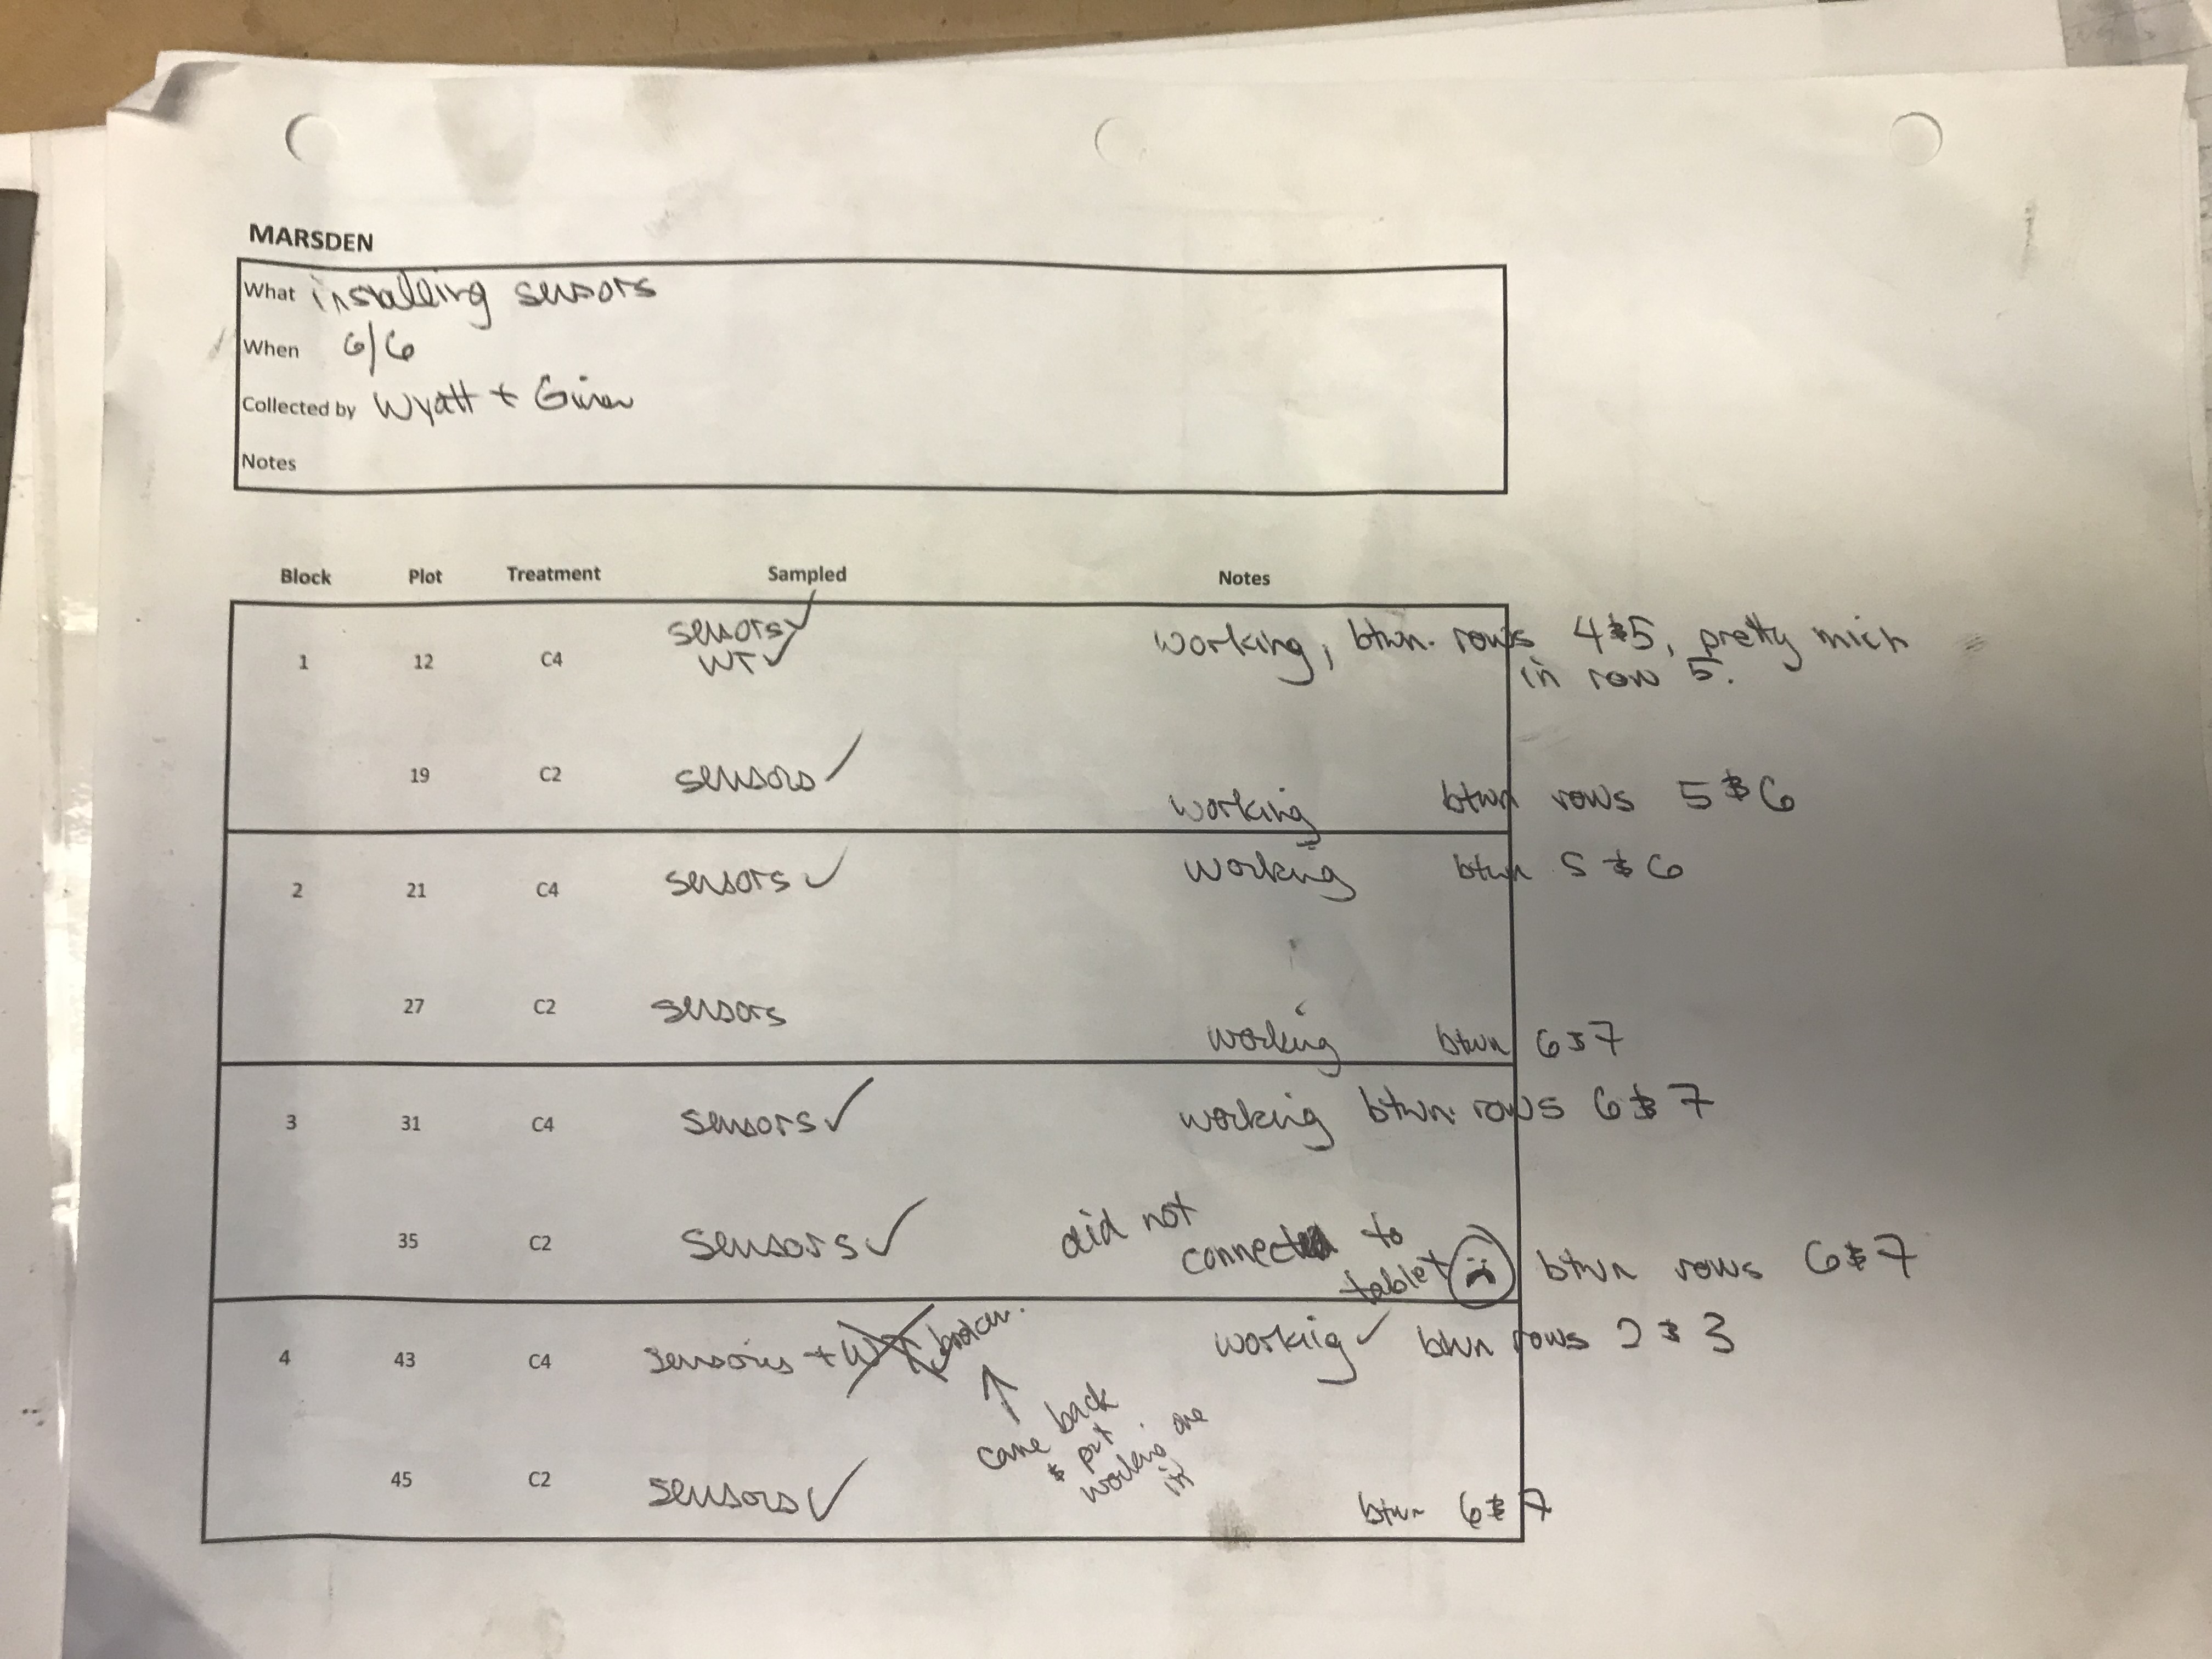 MARSDEN
What installing sensors
When 6/6
Collected by Wyatt +
Notes
Block Plot Treatment Sampled Notes
sensors ✓
1 12 C4 WT ✓ working, btwn. rows 4 & 5, pretty mich
in row 5.
19 C2 sensors ✓ working btwn rows 5 & 6
2 21 C4 sensors ✓ working btwn 5 & 6
27 C2 sensors working btwn 6 & 7
3 31 C4 sensors ✓ working btwn. rows 6 & 7
did not
35 C2 sensors ✓ connect to
tablet btwn rows 6 & 7
4 43 C4 sensors + WT broken. working ✓ btwn rows 2 & 3
↑
came back
& put
working one
in
45 C2 sensors ✓ btwn 6 & 7